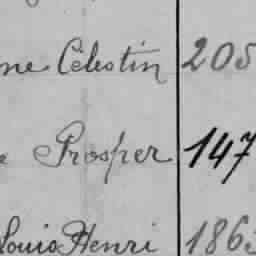 ne Célestin 205
e Prosper 147
Louis Henri 1863